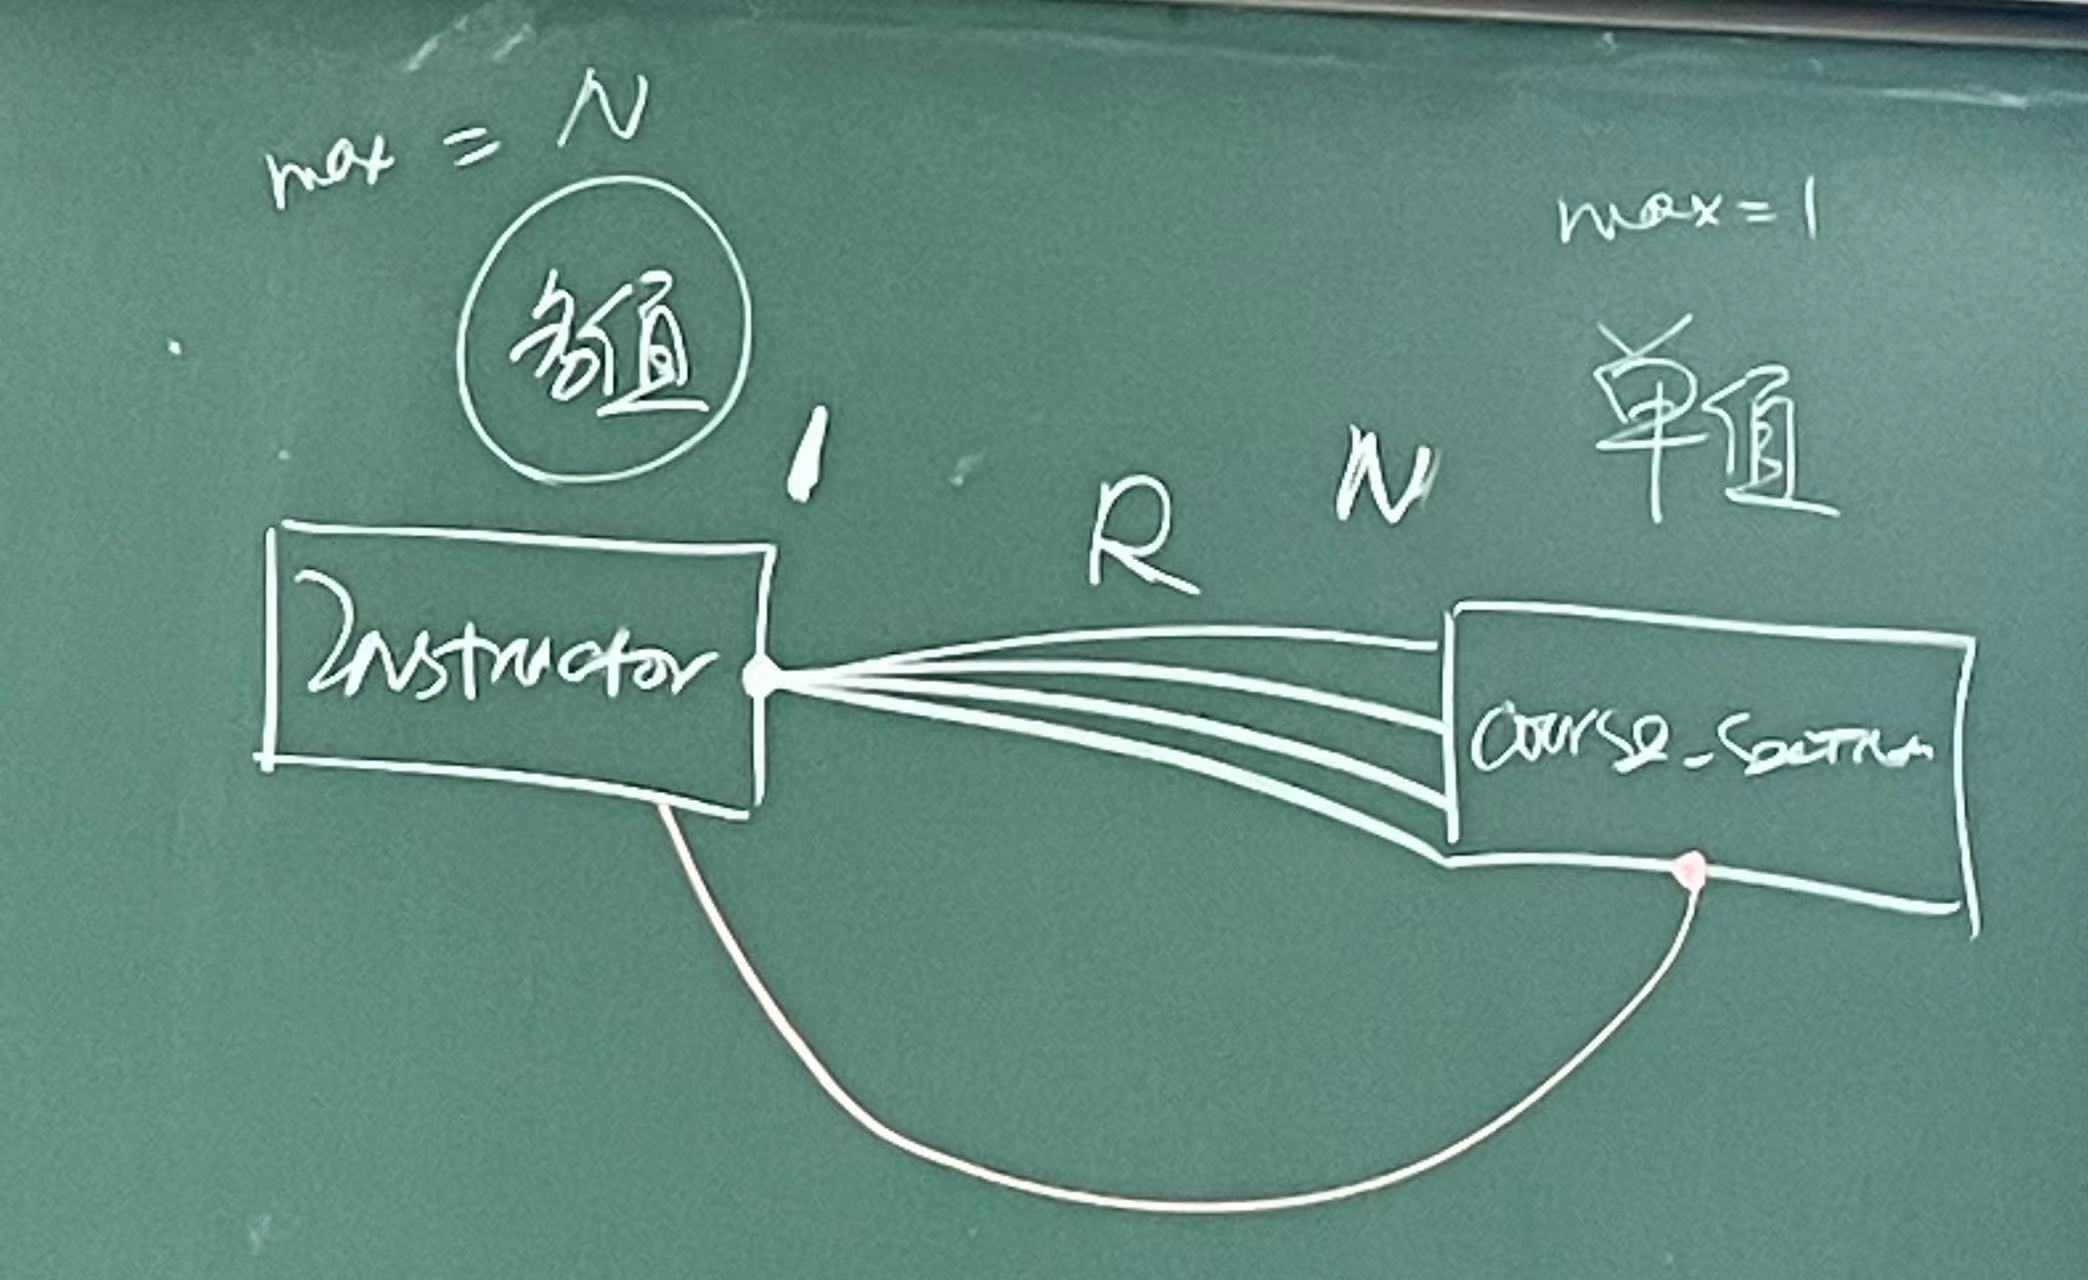 max = N
多值
max = 1
单值
1
R
N
Instructor
Course_Section